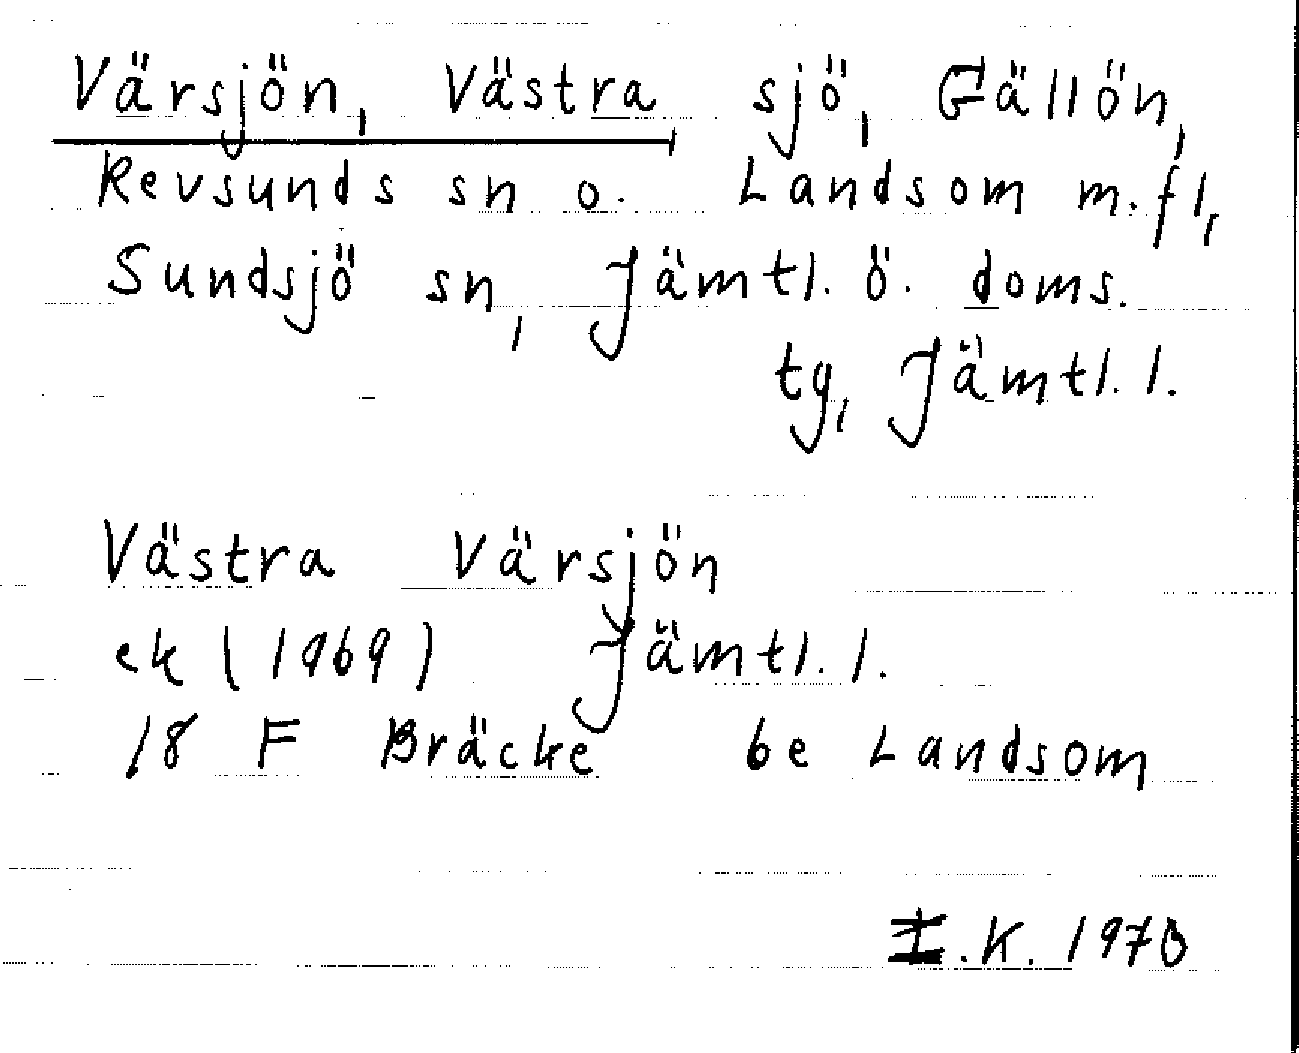 Värsjön, Västra sjö, Gällön,
Revsunds sn o. Landsom m.fl,
Sundsjö sn, Jämtl. ö. doms.
tg, Jämtl. l.
Västra Värsjön
ek (1969) Jämtl. l.
18 F Bräcke be Landsom
I.K. 1970